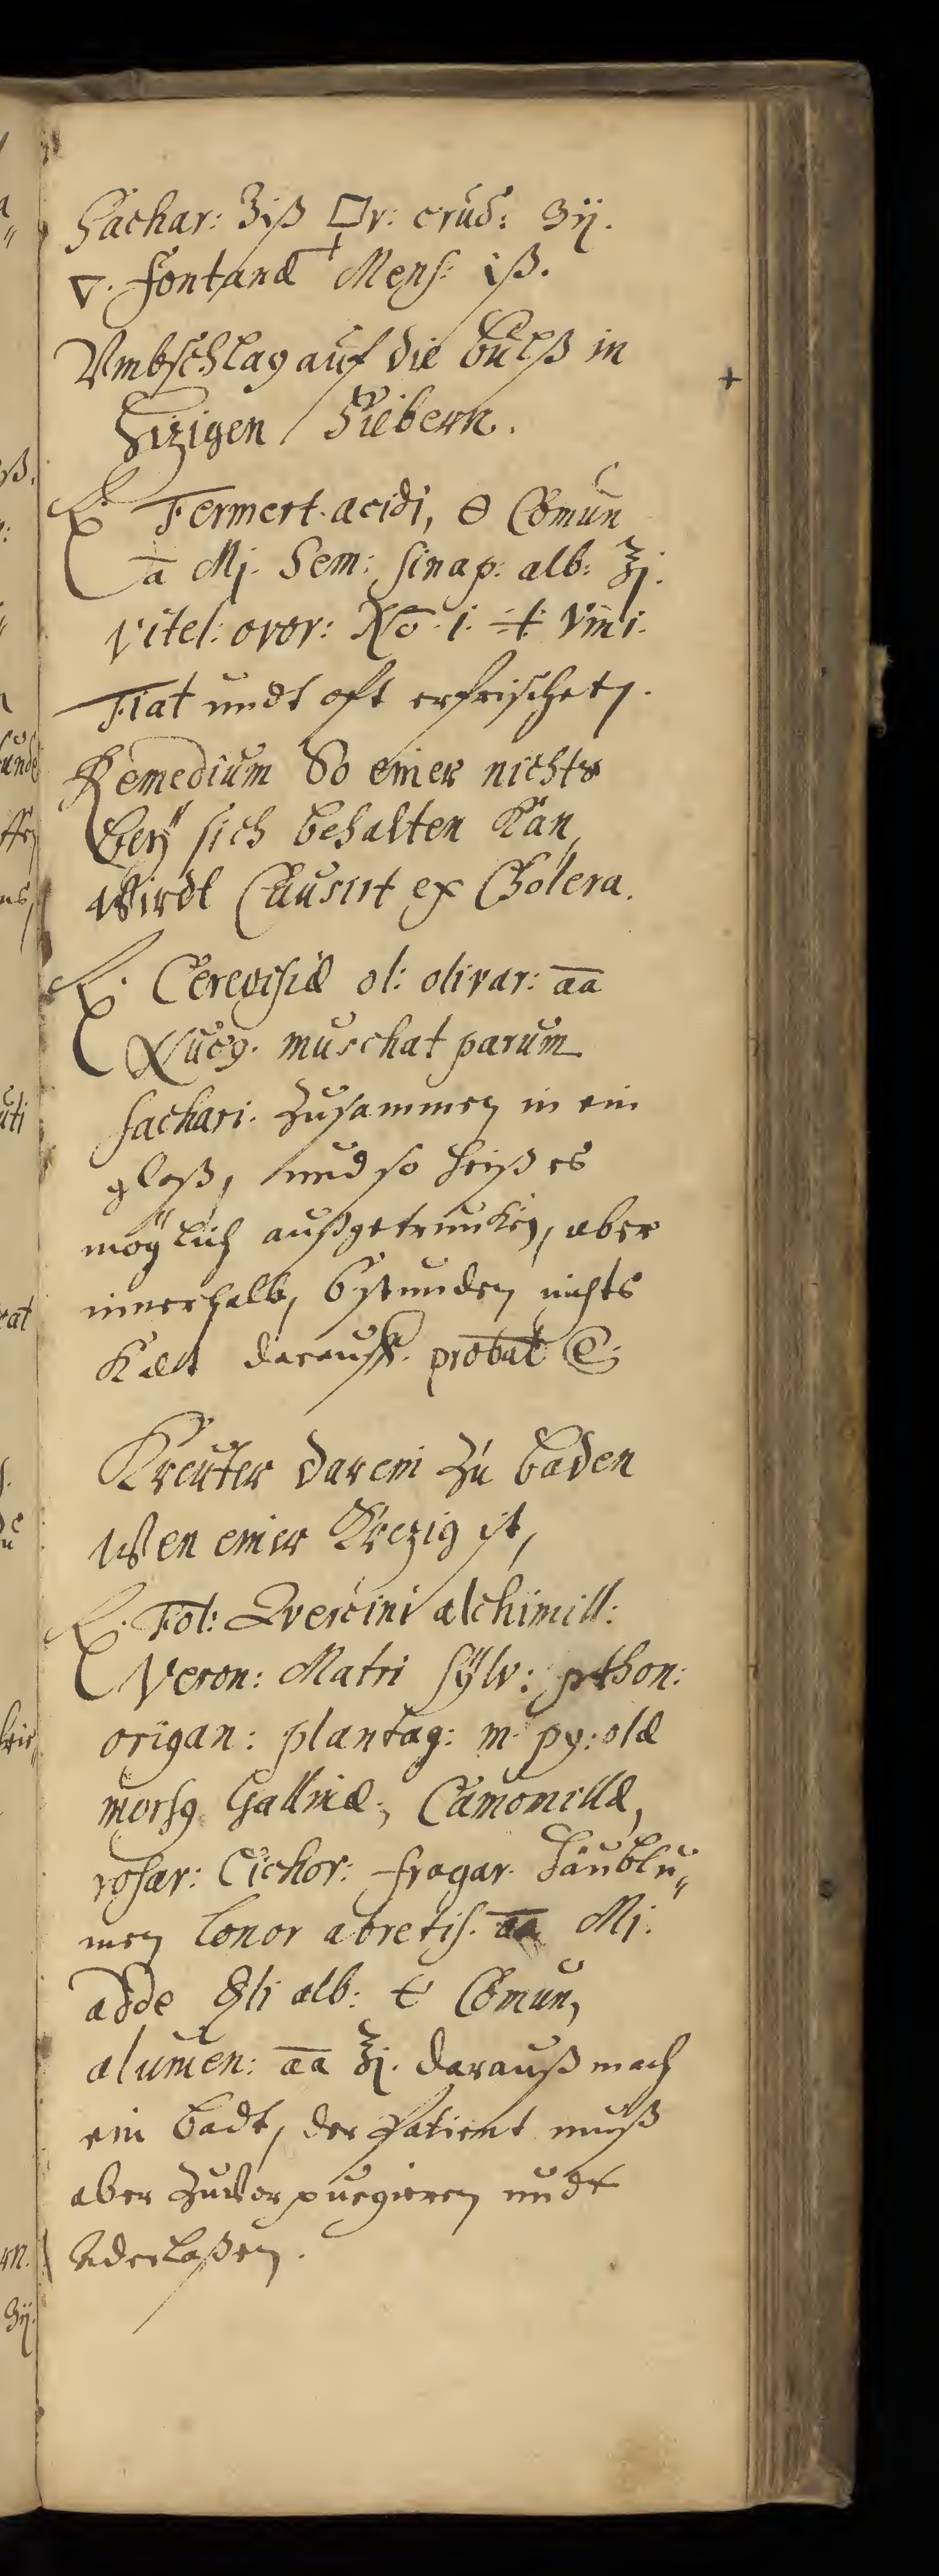 Sachar: ʒiß 🜿r: crud: ʒij.
🜄. fontanæ Mens: iß.
Vmbschlag auf die Bulß in
Hizigen Fiebern.
℞. Ferment. acidi, 🜔 Comun
ā Mj. Sem: sinap: alb: ℥j.
vitel: ovor: No. 1. vini.
Fiat undt oft erfrischet.
Remedium So einer nichts
Beÿ sich behalten Kan,
Wirdt Causirt ex Cholera.
℞. Cerevisiæ ol: olivar: āā
Nucg. muschat parum
sachari. zusammen in ein
glaß, und so heiß es
möglich außgetruncken, aber
innerhalb, 6 stunden nichts
Kalt darauff. probat E:
Kreuter darein zu baden
Wen einer Krezig ist,
℞. Fol: Qvercini alchimill:
Veron: Matri sÿlv:
origan: plantag: m. py:olæ
morsg Gallinæ, Camomillæ,
rosar: Cichor: fragar.
men abretis. āā Mj.
adde alb: Comun,
alumen: āā ℥j. darauß mach
ein badt, der patient muß
aber zuvor purgieren undt
Aderlaßen.